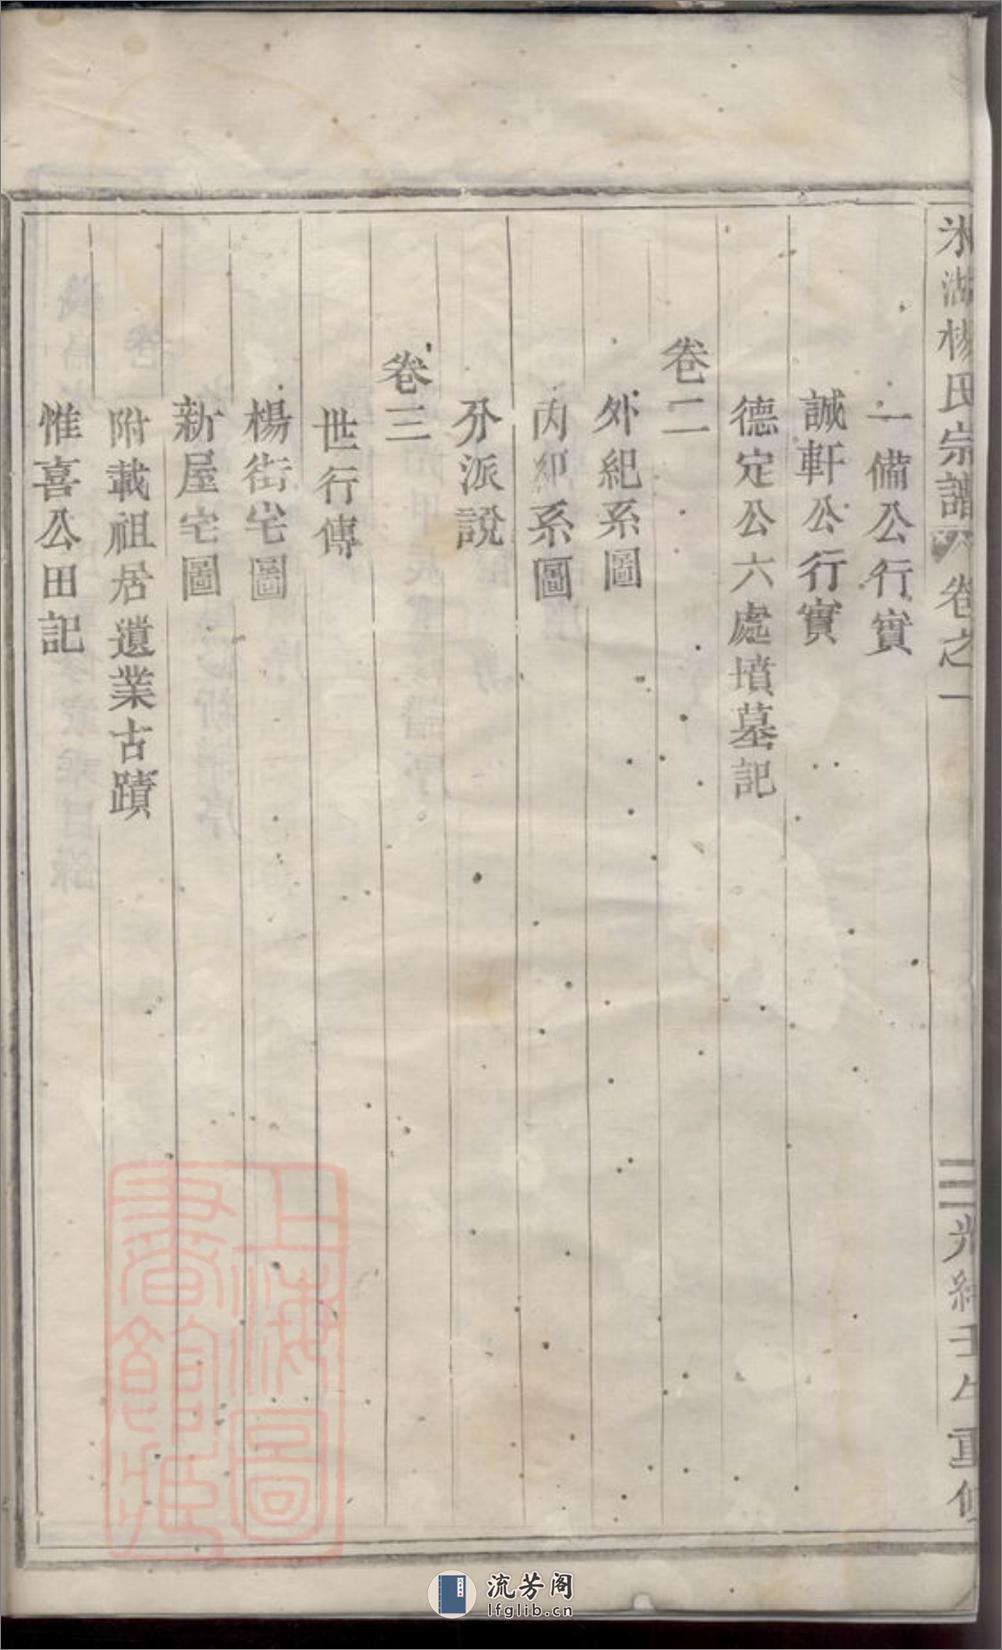 氷湖楊氏宗譜 卷之一
二 光緒壬午重修
一備公行實
誠軒公行實
德定公六處墳墓記
卷二
外紀系圖
內紀系圖
分派說
卷三
世行傳
楊街宅圖
新屋宅圖
附載祖居遺業古蹟
惟喜公田記
上海圖書館藏
流芳阁
lfglib.cn